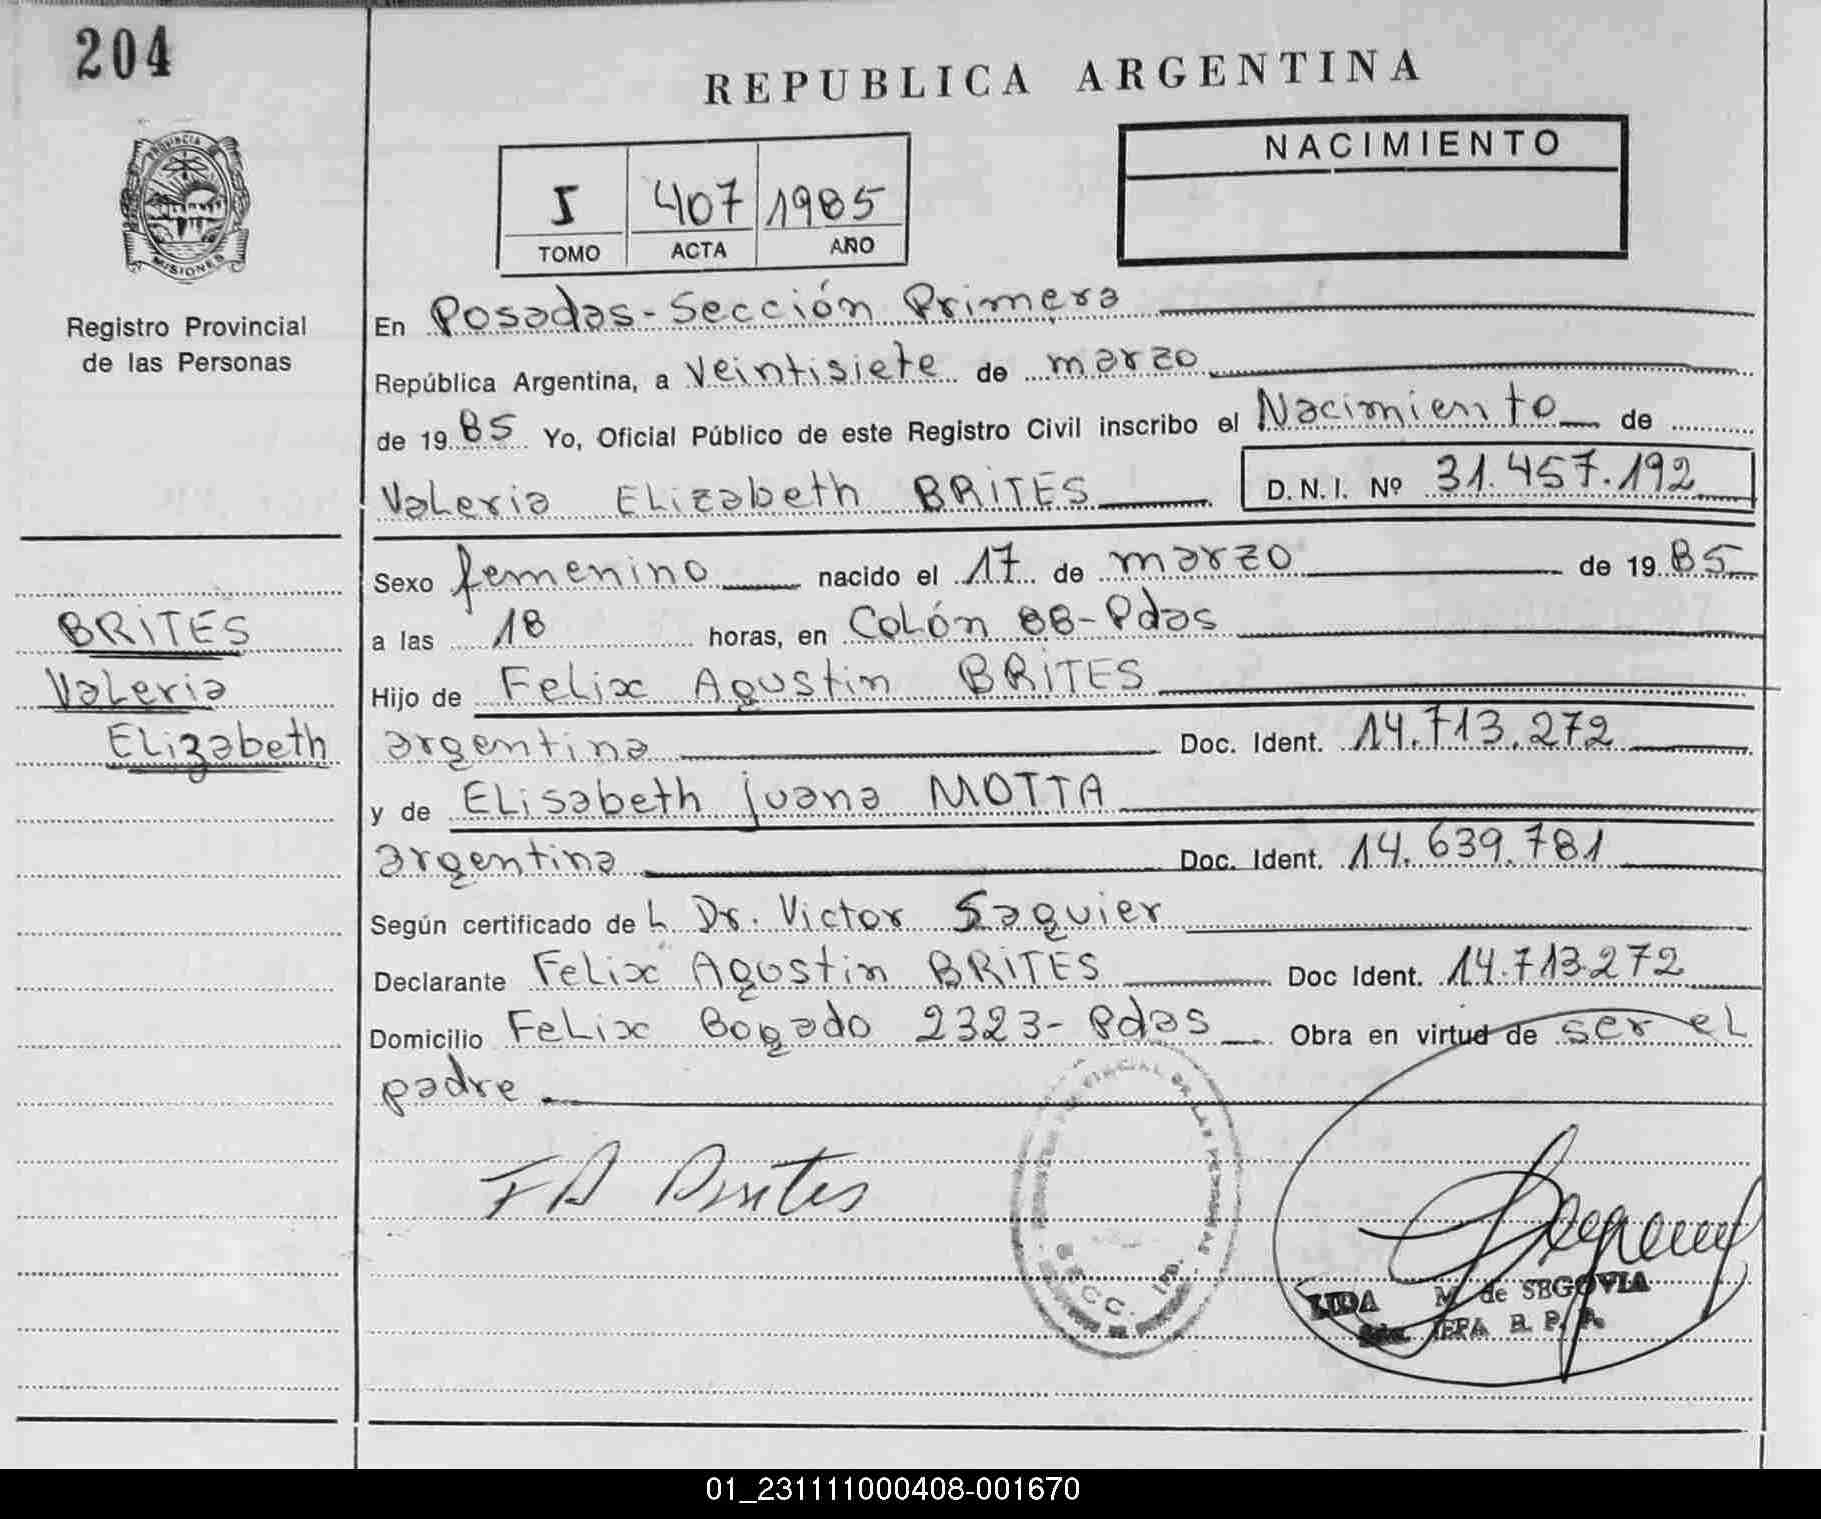 204
REPUBLICA ARGENTINA
PROVINCIA
MISIONES
Registro Provincial
de las Personas
I 407 1985
TOMO ACTA AÑO
NACIMIENTO
En Posadas - Sección Primera
República Argentina, a Veintisiete de marzo
de 19 85 Yo, Oficial Público de este Registro Civil inscribo el Nacimiento de
Valeria Elizabeth BRITES D. N. I. Nº 31.457.192
Sexo femenino nacido el 17 de marzo de 19 85
BRITES
Valeria
Elizabeth
a las 18 horas, en Colón 88 - Pdas
Hijo de Felix Agustin BRITES
argentina Doc. Ident. 14.713.272
y de Elisabeth juana MOTTA
argentina Doc. Ident. 14.639.781
Según certificado de L Dr. Victor Saguier
Declarante Felix Agustin BRITES Doc Ident. 14.713.272
Domicilio Felix Bogado 2323 - Pdas Obra en virtud de ser el
padre
F A Brites
SECC. 1ra.
LIDA M. de SEGOVIA
JEFA R. P. P.
01_231111000408-001670